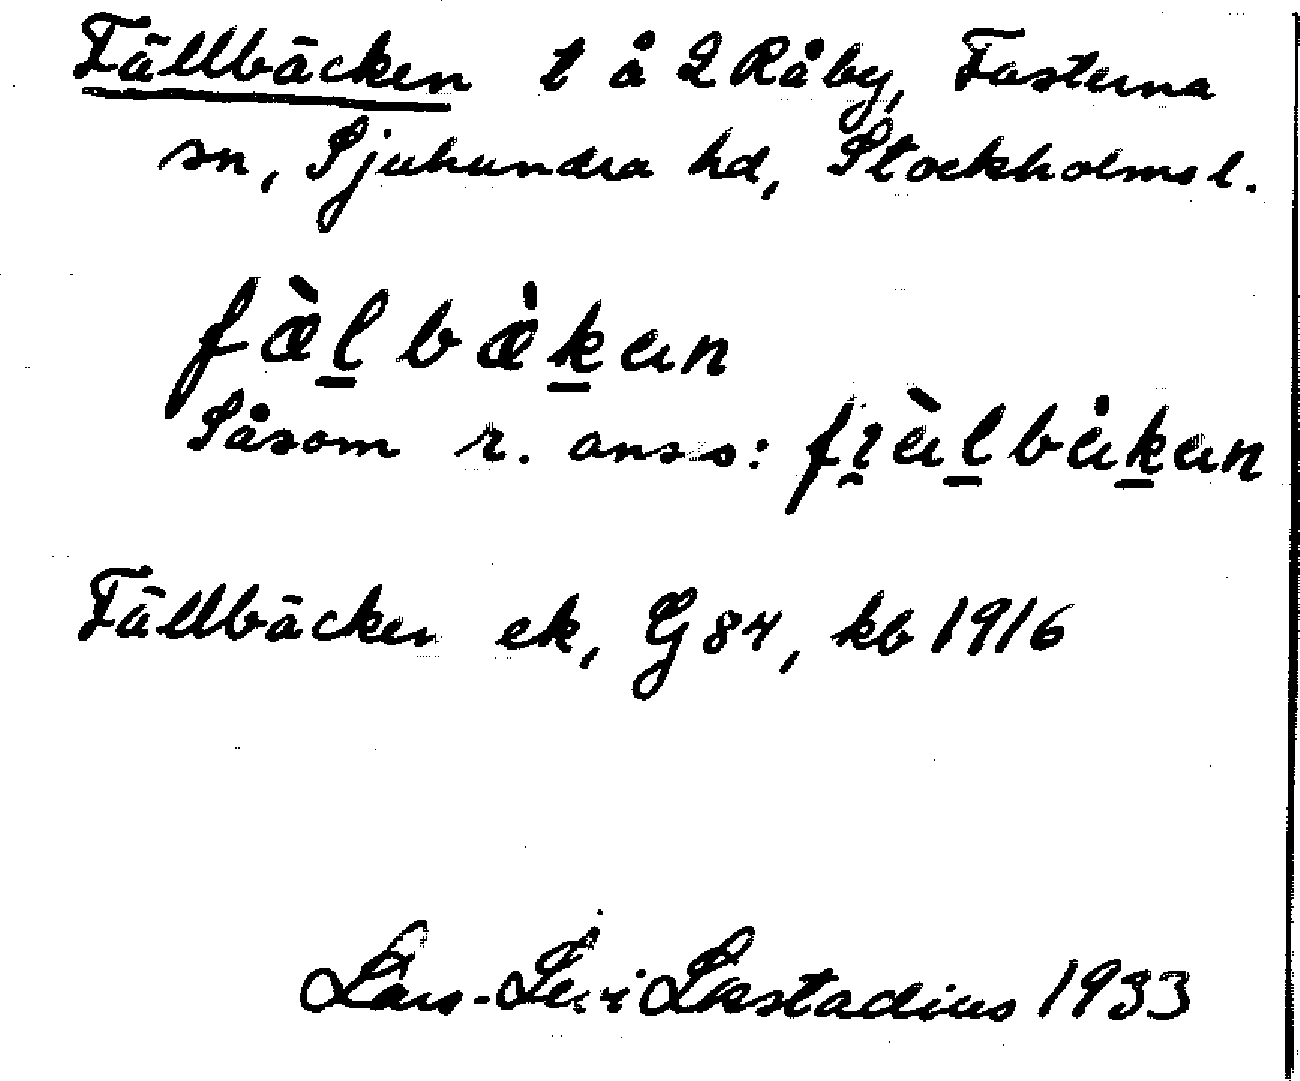 Fällbäcken t å 2 Råby, Fasterna
sn, Sjuhundra hd, Stockholms l.
fæ̀l̲bæ̇k̲an
Såsom r. anses: fi̯àl̲bȧk̲an
Fällbäcken ek, G 84, kb 1916
Lars-Levi Læstadius 1933